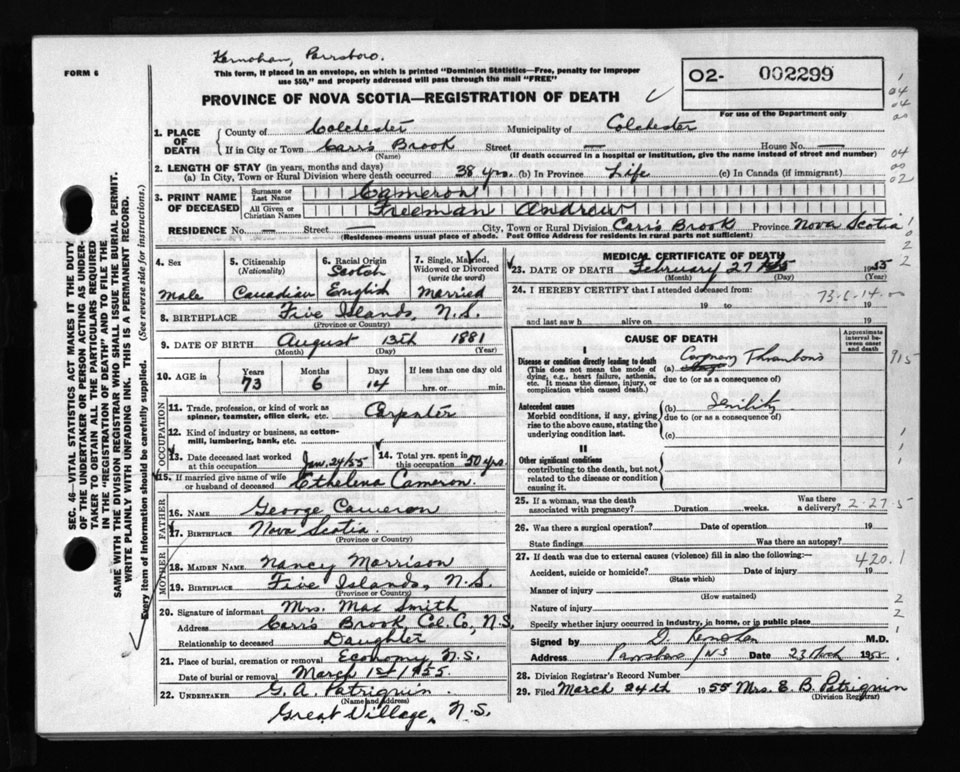 Kernohan, Parrsboro.
FORM 6
This form, if placed in an envelope, on which is printed "Dominion Statistics—Free, penalty for improper
use $50," and properly addressed will pass through the mail "FREE"
02- 002299
For use of the Department only
PROVINCE OF NOVA SCOTIA—REGISTRATION OF DEATH
1. PLACE OF DEATH { County of Colchester Municipality of Colchester
If in City or Town Carr's Brook Street — House No. —
(Name) (If death occurred in a hospital or institution, give the name instead of street and number)
2. LENGTH OF STAY (in years, months and days)
(a) In City, Town or Rural Division where death occurred 38 yrs. (b) In Province Life (c) In Canada (if immigrant)
3. PRINT NAME OF DECEASED { Surname or Last Name Cameron
All Given or Christian Names Freeman Andrew
RESIDENCE No. — Street — City, Town or Rural Division Carr's Brook Province Nova Scotia
(Residence means usual place of abode. Post Office Address for residents in rural parts not sufficient)
4. Sex Male
5. Citizenship (Nationality) Canadian
6. Racial Origin Scotch English
7. Single, Married, Widowed or Divorced (write the word) Married
8. BIRTHPLACE Five Islands, N.S.
(Province or Country)
9. DATE OF BIRTH August 13th 1881
(Month) (Day) (Year)
10. AGE in { Years 73 Months 6 Days 14 If less than one day old
hrs. or min.
OCCUPATION
11. Trade, profession, or kind of work as spinner, teamster, office clerk, etc. Carpenter
12. Kind of industry or business, as cotton-mill, lumbering, bank, etc.
13. Date deceased last worked at this occupation Jan. 24/55
14. Total yrs. spent in this occupation 50 yrs.
15. If married give name of wife or husband of deceased Ethelena Cameron.
FATHER
16. NAME George Cameron
17. BIRTHPLACE Nova Scotia
(Province or Country)
MOTHER
18. MAIDEN NAME Nancy Morrison
19. BIRTHPLACE Five Islands, N.S.
(Province or Country)
20. Signature of informant Mrs. Max Smith
Address Carr's Brook Col. Co., N.S.
Relationship to deceased Daughter
21. Place of burial, cremation or removal Economy N.S.
Date of burial or removal March 1st 1955.
22. UNDERTAKER G. A. Patriquin.
(Name and Address)
Great Village, N.S.
MEDICAL CERTIFICATE OF DEATH
23. DATE OF DEATH February 27 1955
(Month) (Day) (Year)
24. I HEREBY CERTIFY that I attended deceased from: 73-6-14
19 to 19
and last saw h alive on 19
CAUSE OF DEATH
Approximate interval between onset and death
I
Disease or condition directly leading to death (a) Coronary Thrombosis
(This does not mean the mode of dying, e.g., heart failure, asthenia, etc. It means the disease, injury, or complication which caused death.)
due to (or as a consequence of)
Antecedent causes (b) Senility
Morbid conditions, if any, giving rise to the above cause, stating the underlying condition last.
due to (or as a consequence of)
(c)
II
Other significant conditions
contributing to the death, but not related to the disease or condition causing it.
25. If a woman, was the death associated with pregnancy? Duration weeks. Was there a delivery? 2-27-5
26. Was there a surgical operation? Date of operation 19
State findings Was there an autopsy?
27. If death was due to external causes (violence) fill in also the following:— 420.1
Accident, suicide or homicide? Date of injury 19
(State which)
Manner of injury
(How sustained)
Nature of injury
Specify whether injury occurred in industry, in home, or in public place
Signed by D. Kernohan M.D.
Address Parrsboro NS Date 23 March 1955.
28. Division Registrar's Record Number
29. Filed March 24th 1955 Mrs. E. B. Patriquin
(Division Registrar)
SEC. 46—VITAL STATISTICS ACT MAKES IT THE DUTY
OF THE UNDERTAKER OR PERSON ACTING AS UNDER-
TAKER TO OBTAIN ALL THE PARTICULARS REQUIRED
IN THE "REGISTRATION OF DEATH" AND TO FILE THE
SAME WITH THE DIVISION REGISTRAR WHO SHALL ISSUE THE BURIAL PERMIT.
WRITE PLAINLY WITH UNFADING INK. THIS IS A PERMANENT RECORD.
Every item of information should be carefully supplied. (See reverse side for instructions.)